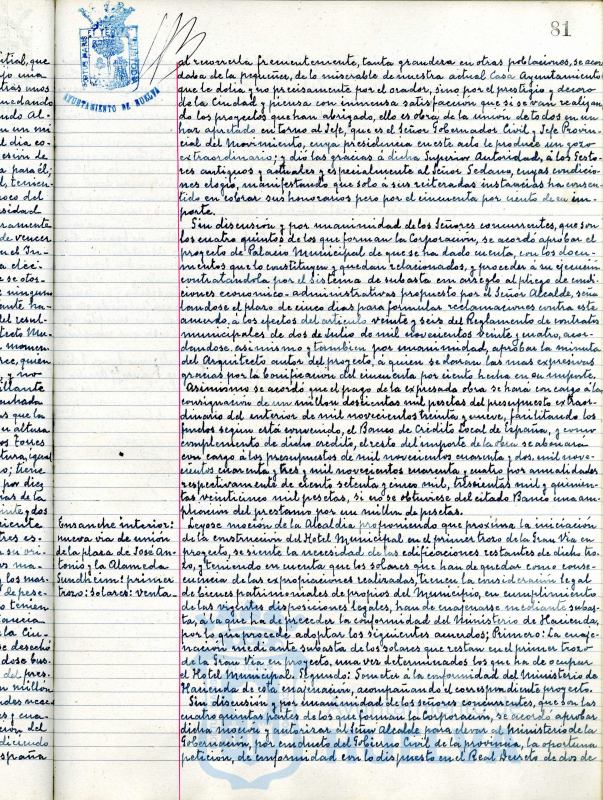 81
AYUNTAMIENTO DE HUELVA
al recorrerla frecuentemente, tanta grandeza en otras poblaciones, se acor-
daba de la pequeñez, de lo miserable de nuestra actual Casa Ayuntamiento
que le dolia y no precisamente por el orador, sino por el prestigio y decoro
de la Ciudad y piensa con inmensa satisfaccion que si se van realizan-
do los proyectos que han abrigado, ello es obra de la union de todos en un
haz apretado en torno al Jefe, que es el Señor Gobernador Civil, y Jefe Provin-
cial del Movimiento, cuya presidencia en este acto le produce un gozo
extraordinario; y dió las gracias á dicha Superior Autoridad, á los Gesto-
res antiguos y actuales y especialmente al Señor Sedano, cuyas condicio-
nes elogió, manifestando que solo á sus reiteradas instancias ha consen-
tido en cobrar sus honorarios pero por el cincuenta por ciento de su im-
porte.
Sin discusión y por unanimidad de los Señores concurrentes, que son
los cuatro quintos de los que forman la Corporación, se acordo aprobar el
proyecto de Palacio Municipal de que se ha dado cuenta, con los docu-
mentos que lo constituyen y quedan relacionados, y proceder a su ejecución
contratandola por el sistema de subasta con arreglo al pliego de condi-
ciones economico-administrativas propuesto por el Señor Alcalde, seña-
landose el plazo de cinco dias para formular reclamaciones contra este
acuerdo, á los efectos del articulo veinte y seis del Reglamento de contratos
municipales de dos de Julio de mil novecientos veinte y cuatro, acor-
dandose, asi mismo y tambien por unanimidad, aprobar la minuta
del Arquitecto autor del proyecto, á quien se daran las mas expresivas
gracias por la bonificacion del cincuenta por ciento hecha en su importe.
Asimismo se acordó que el pago de la expresada obra se hará con cargo á la
consignacion de un millon doscientas mil pesetas del presupuesto extraor-
dinario del anterior de mil novecientos treinta y nueve, facilitando los
fondos segun está convenido, el Banco de Crédito Local de España, y como
complemento de dicho crédito, el resto del importe de la obra se abonará
con cargo á los presupuestos de mil novecientos cuarenta y dos, mil nove-
cientos cuarenta y tres y mil novecientos cuarenta y cuatro por anualidades
respectivamente de ciento setenta y cinco mil, trescientas mil y quinien-
tas veinticinco mil pesetas, si no se obtuviese del citado Banco una am-
pliacion del prestamo por un millon de pesetas.
Ensanche interior:
nueva via de unión
de la plaza de José An-
tonio y la Alameda
Sundheim: primer
trozo: solares: venta.
Leyose moción de la Alcaldia proponiendo que proxima la iniciación
de la construcción del Hotel Municipal en el primer trozo de la Gran Via en
proyecto, se siente la necesidad de las edificaciones restantes de dicho tro-
zo, y teniendo en cuenta que los solares que han de quedar como conse-
cuencia de las expropiaciones realizadas, tienen la consideración legal
de bienes patrimoniales de propios del Municipio, en cumplimiento
de las vigentes disposiciones legales, han de enajenarse mediante subas-
ta, á la que ha de preceder la conformidad del Ministerio de Hacienda,
por lo que procede adoptar los siguientes acuerdos; Primero: La enaje-
nación mediante subasta de los solares que restan en el primer trozo
de la Gran Via en proyecto, una vez determinados los que ha de ocupar
el Hotel Municipal. Segundo: Someter á la conformidad del Ministerio de
Hacienda de esta enajenación, acompañando el correspondiente proyecto.
Sin discusión y por unanimidad de los señores concurrentes, que son las
cuatro quintas partes de los que forman la Corporación, se acordo aprobar
dicha moción y autorizar al Señor Alcalde para elevar al ministerio de la
Gobernación, por conducto del Gobierno Civil de la provincia, la oportuna
petición, de conformidad con lo dispuesto en el Real Decreto de dos de